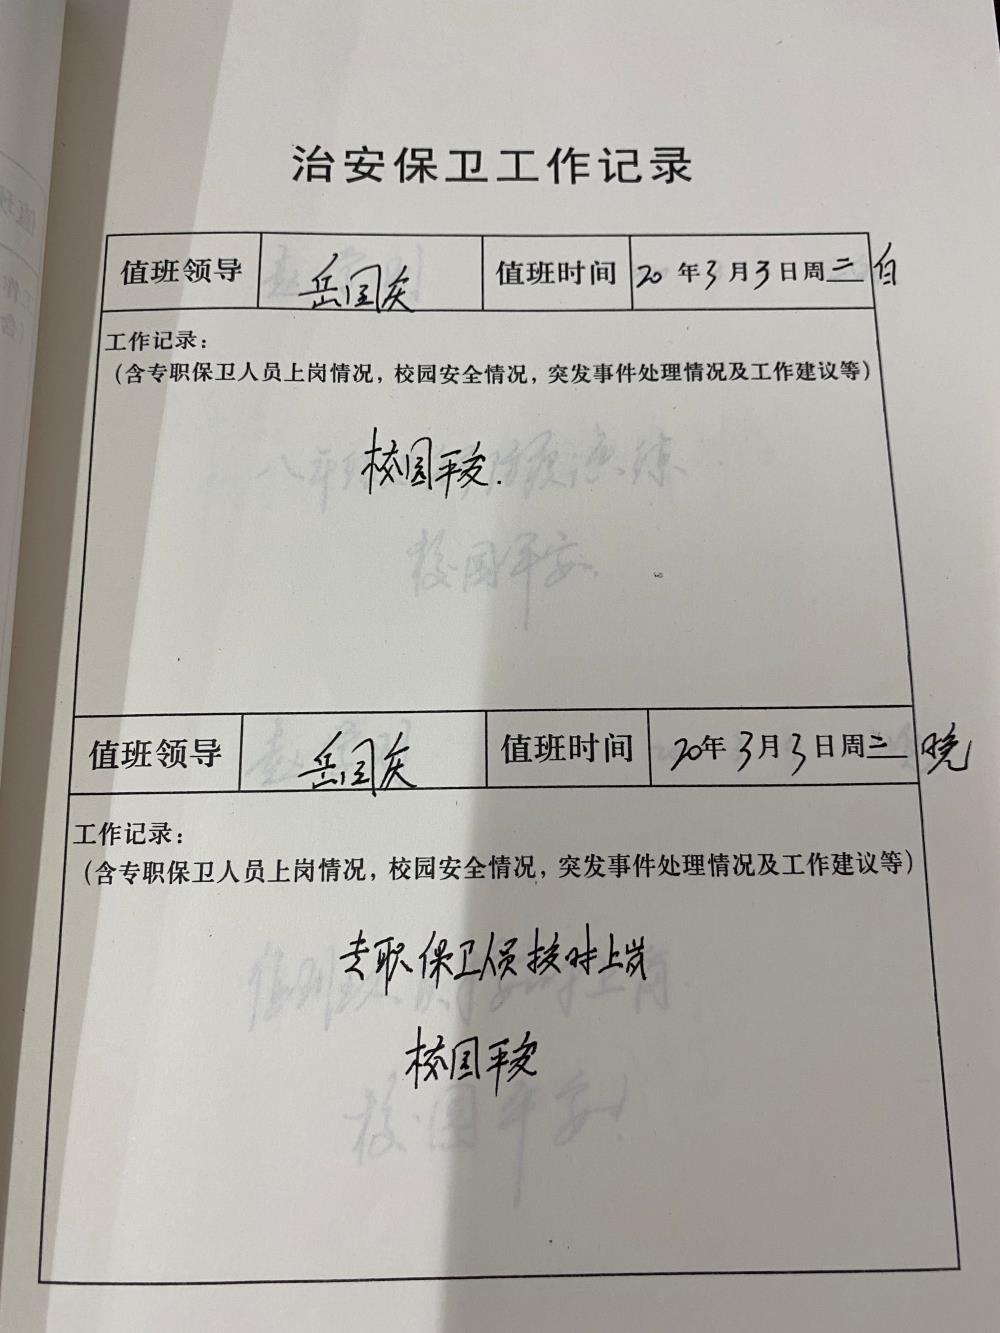 治安保卫工作记录
值班领导 岳国庆 值班时间 20年3月3日周三 白
工作记录：
（含专职保卫人员上岗情况，校园安全情况，突发事件处理情况及工作建议等）
校园平安.
值班领导 岳国庆 值班时间 20年3月3日周三 晚
工作记录：
（含专职保卫人员上岗情况，校园安全情况，突发事件处理情况及工作建议等）
专职保卫人员按时上岗
校园平安